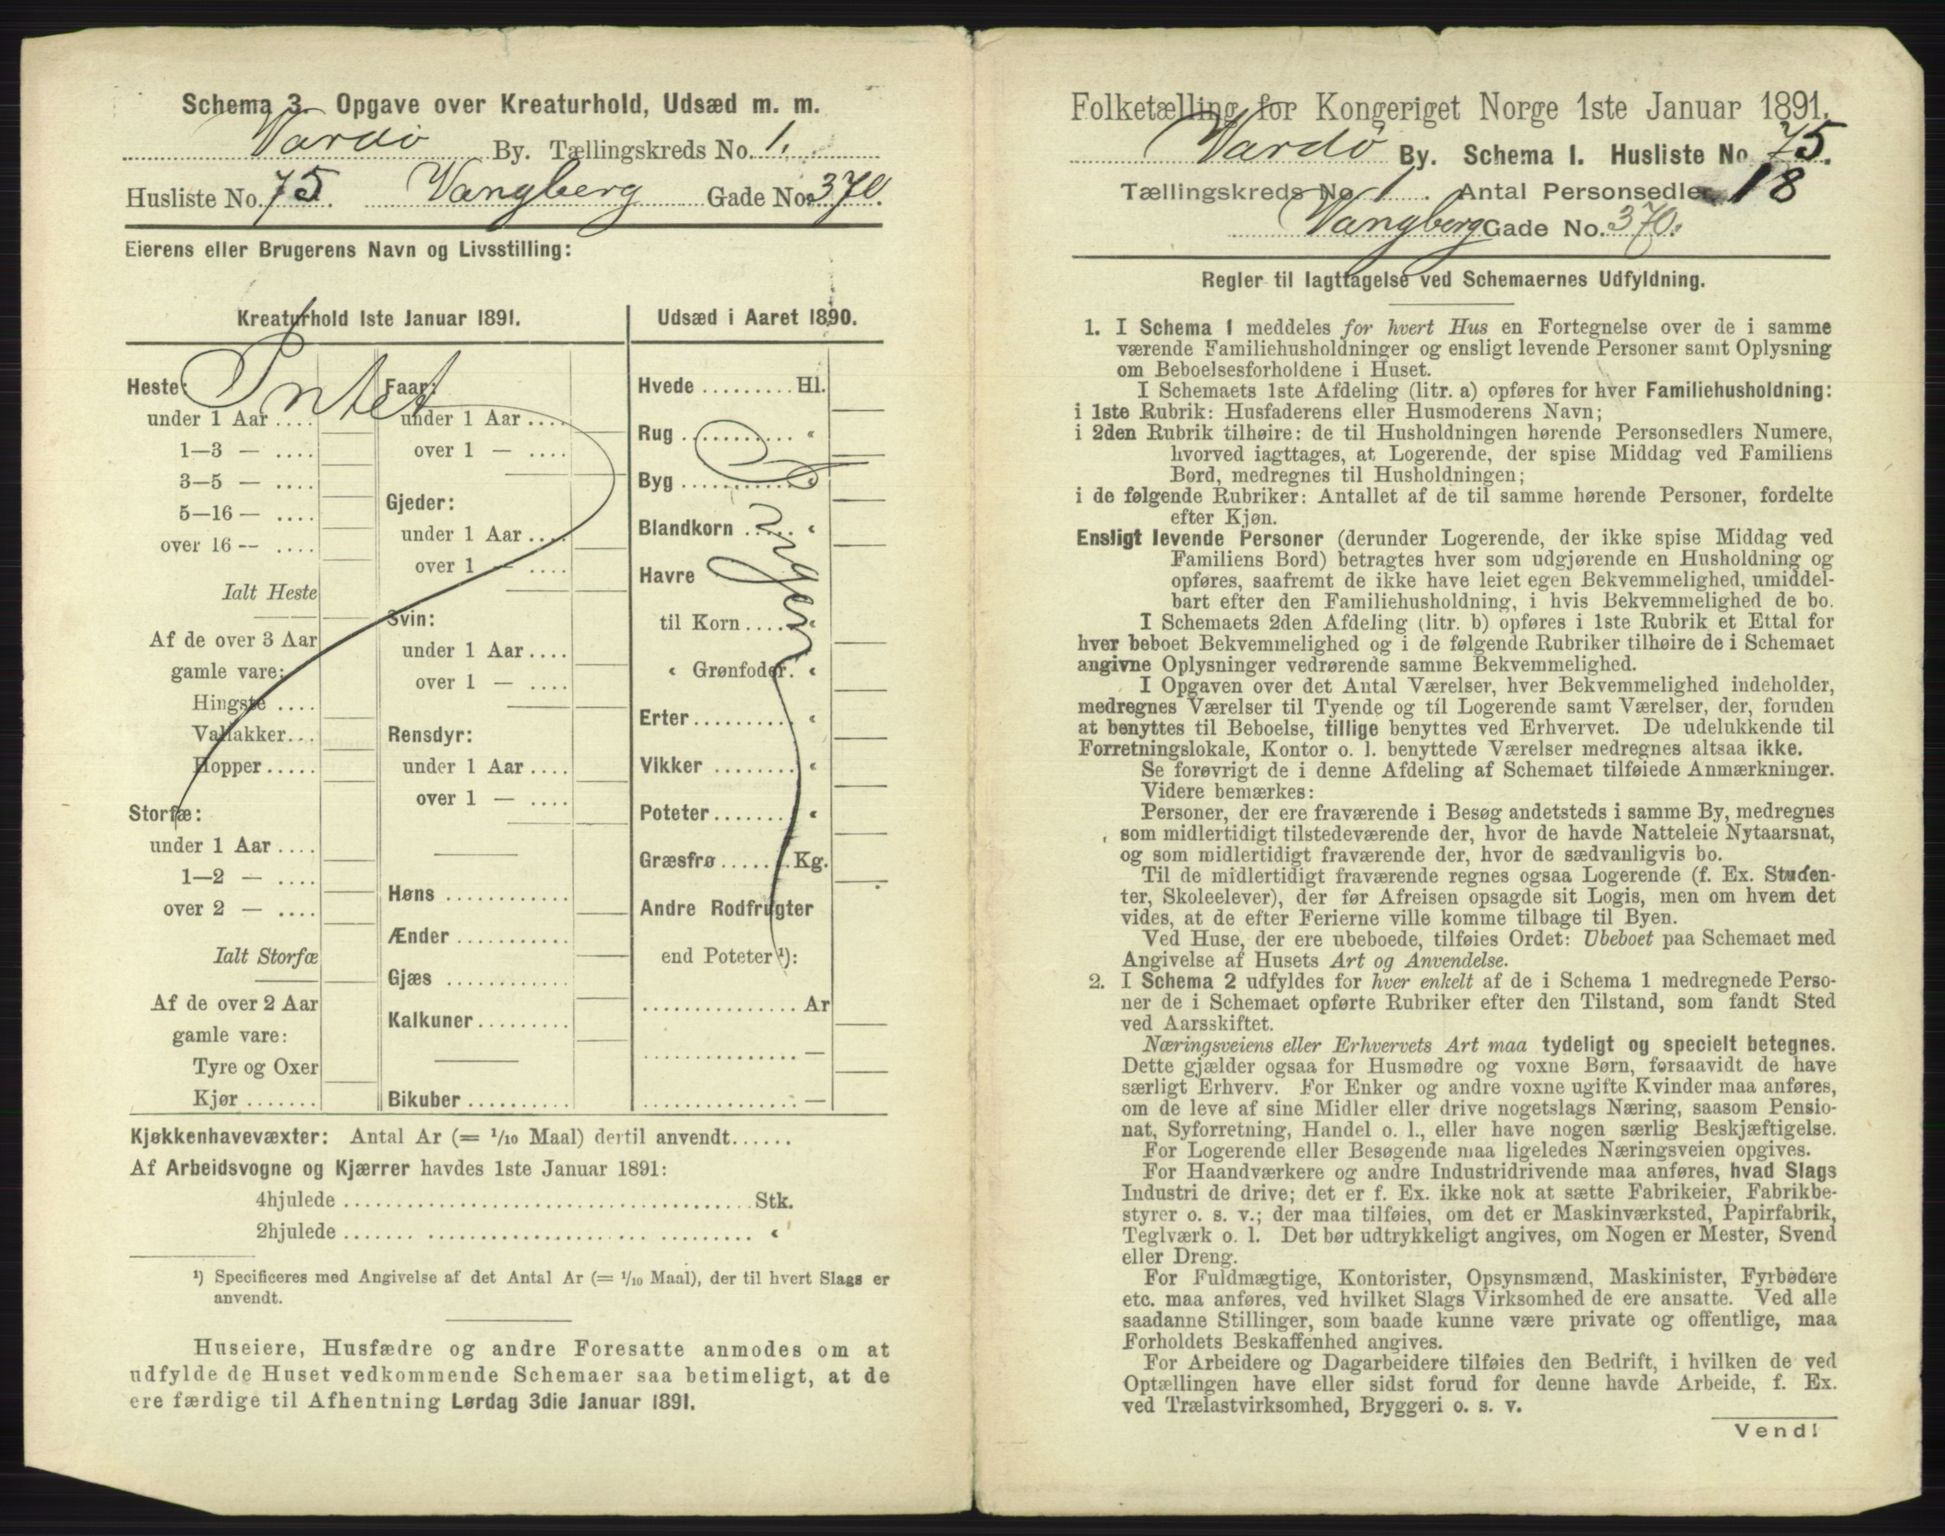 Schema 3. Opgave over Kreaturhold, Udsæd m. m.
Vardø By. Tællingskreds No. 1.
Husliste No. 75. Vangberg Gade No. 370.
Eierens eller Brugerens Navn og Livsstilling:
Kreaturhold 1ste Januar 1891.
Intet
Heste:
under 1 Aar ....
1—3 — ....
3—5 — ....
5—16 — ....
over 16 — ....
Ialt Heste
Af de over 3 Aar
gamle vare:
Hingste ....
Vallakker...
Hopper.....
Storfæ:
under 1 Aar ....
1—2 — ....
over 2 — ....
Ialt Storfæ
Af de over 2 Aar
gamle vare:
Tyre og Oxer
Kjør .......
Faar:
under 1 Aar ....
over 1 — ....
Gjeder:
under 1 Aar ....
over 1 — ....
Svin:
under 1 Aar ....
over 1 — ....
Rensdyr:
under 1 Aar ....
over 1 — ....
Høns ............
Ænder ...........
Gjæs ............
Kalkuner.........
Bikuber ..........
Udsæd i Aaret 1890.
Ingen
Hvede ......... Hl.
Rug ........... «
Byg ............ «
Blandkorn ..... «
Havre
til Korn ..... «
« Grønfoder. «
Erter.......... «
Vikker ........ «
Poteter ....... «
Græsfrø ...... Kg.
Andre Rodfrugter
end Poteter ¹):
............... Ar
............... —
............... —
Kjøkkenhavevæxter: Antal Ar (= 1/10 Maal) dertil anvendt......
Af Arbeidsvogne og Kjærrer havdes 1ste Januar 1891:
4hjulede ..................................... Stk.
2hjulede ..................................... «
¹) Specificeres med Angivelse af det Antal Ar (= 1/10 Maal), der til hvert Slags er
anvendt.
Huseiere, Husfædre og andre Foresatte anmodes om at
udfylde de Huset vedkommende Schemaer saa betimeligt, at de
ere færdige til Afhentning Lørdag 3die Januar 1891.
Folketælling for Kongeriget Norge 1ste Januar 1891.
Vardø By. Schema 1. Husliste No. 75.
Tællingskreds No 1. Antal Personsedler 18
Vangberg Gade No. 370.
Regler til Iagttagelse ved Schemaernes Udfyldning.
1. I Schema 1 meddeles for hvert Hus en Fortegnelse over de i samme
værende Familiehusholdninger og ensligt levende Personer samt Oplysning
om Beboelsesforholdene i Huset.
I Schemaets 1ste Afdeling (litr. a) opføres for hver Familiehusholdning:
i 1ste Rubrik: Husfaderens eller Husmoderens Navn;
i 2den Rubrik tilhøire: de til Husholdningen hørende Personsedlers Numere,
hvorved iagttages, at Logerende, der spise Middag ved Familiens
Bord, medregnes til Husholdningen;
i de følgende Rubriker: Antallet af de til samme hørende Personer, fordelte
efter Kjøn.
Ensligt levende Personer (derunder Logerende, der ikke spise Middag ved
Familiens Bord) betragtes hver som udgjørende en Husholdning og
opføres, saafremt de ikke have leiet egen Bekvemmelighed, umiddel-
bart efter den Familiehusholdning, i hvis Bekvemmelighed de bo.
I Schemaets 2den Afdeling (litr. b) opføres i 1ste Rubrik et Ettal for
hver beboet Bekvemmelighed og i de følgende Rubriker tilhøire de i Schemaet
angivne Oplysninger vedrørende samme Bekvemmelighed.
I Opgaven over det Antal Værelser, hver Bekvemmelighed indeholder,
medregnes Værelser til Tyende og til Logerende samt Værelser, der, foruden
at benyttes til Beboelse, tillige benyttes ved Erhvervet. De udelukkende til
Forretningslokale, Kontor o. l. benyttede Værelser medregnes altsaa ikke.
Se forøvrigt de i denne Afdeling af Schemaet tilføiede Anmærkninger.
Videre bemærkes:
Personer, der ere fraværende i Besøg andetsteds i samme By, medregnes
som midlertidigt tilstedeværende der, hvor de havde Natteleie Nytaarsnat,
og som midlertidigt fraværende der, hvor de sædvanligvis bo.
Til de midlertidigt fraværende regnes ogsaa Logerende (f. Ex. Studen-
ter, Skoleelever), der før Afreisen opsagde sit Logis, men om hvem det
vides, at de efter Ferierne ville komme tilbage til Byen.
Ved Huse, der ere ubeboede, tilføies Ordet: Ubeboet paa Schemaet med
Angivelse af Husets Art og Anvendelse.
2. I Schema 2 udfyldes for hver enkelt af de i Schema 1 medregnede Perso-
ner de i Schemaet opførte Rubriker efter den Tilstand, som fandt Sted
ved Aarsskiftet.
Næringsveiens eller Erhvervets Art maa tydeligt og specielt betegnes.
Dette gjælder ogsaa for Husmødre og voxne Børn, forsaavidt de have
særligt Erhverv. For Enker og andre voxne ugifte Kvinder maa anføres,
om de leve af sine Midler eller drive nogetslags Næring, saasom Pensio-
nat, Syforretning, Handel o. l., eller have nogen særlig Beskjæftigelse.
For Logerende eller Besøgende maa ligeledes Næringsveien opgives.
For Haandværkere og andre Industridrivende maa anføres, hvad Slags
Industri de drive; det er f. Ex. ikke nok at sætte Fabrikeier, Fabrikbe-
styrer o. s. v.; der maa tilføies, om det er Maskinværksted, Papirfabrik,
Teglværk o. l. Det bør udtrykkeligt angives, om Nogen er Mester, Svend
eller Dreng.
For Fuldmægtige, Kontorister, Opsynsmænd, Maskinister, Fyrbødere
etc. maa anføres, ved hvilket Slags Virksomhed de ere ansatte. Ved alle
saadanne Stillinger, som baade kunne være private og offentlige, maa
Forholdets Beskaffenhed angives.
For Arbeidere og Dagarbeidere tilføies den Bedrift, i hvilken de ved
Optællingen have eller sidst forud for denne havde Arbeide, f. Ex.
ved Trælastvirksomhed, Bryggeri o. s. v.
Vend!